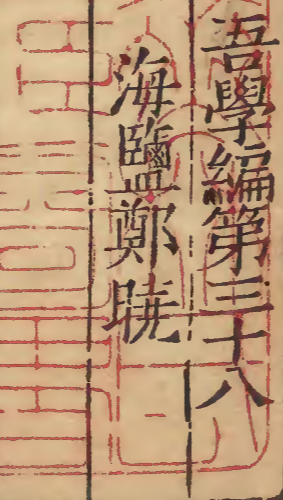 吾學編第三十八
海鹽鄭曉